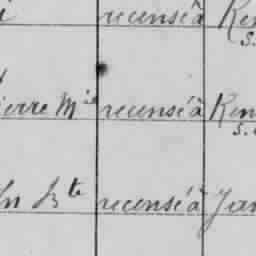 recensé à Ren
S.
ierre Mie recensé à Ren
S.
Jn Bte recensé à Jan